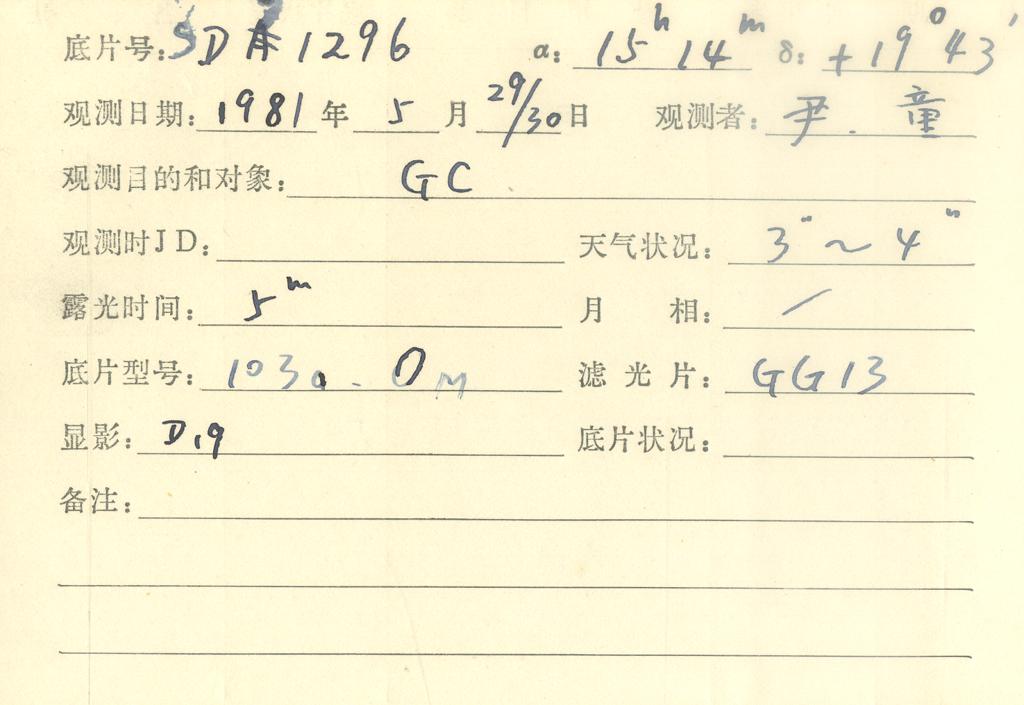 底片号:SDA1296 α: 15ʰ 14ᵐ δ: +19°43′
观测日期: 1981 年 5 月 29/30 日 观测者: 尹. 童
观测目的和对象: GC
观测时JD: 天气状况: 3″~4″
露光时间: 5ᵐ 月 相: /
底片型号: 103a-O 滤光片: GG13
显影: D.19 底片状况:
备注: